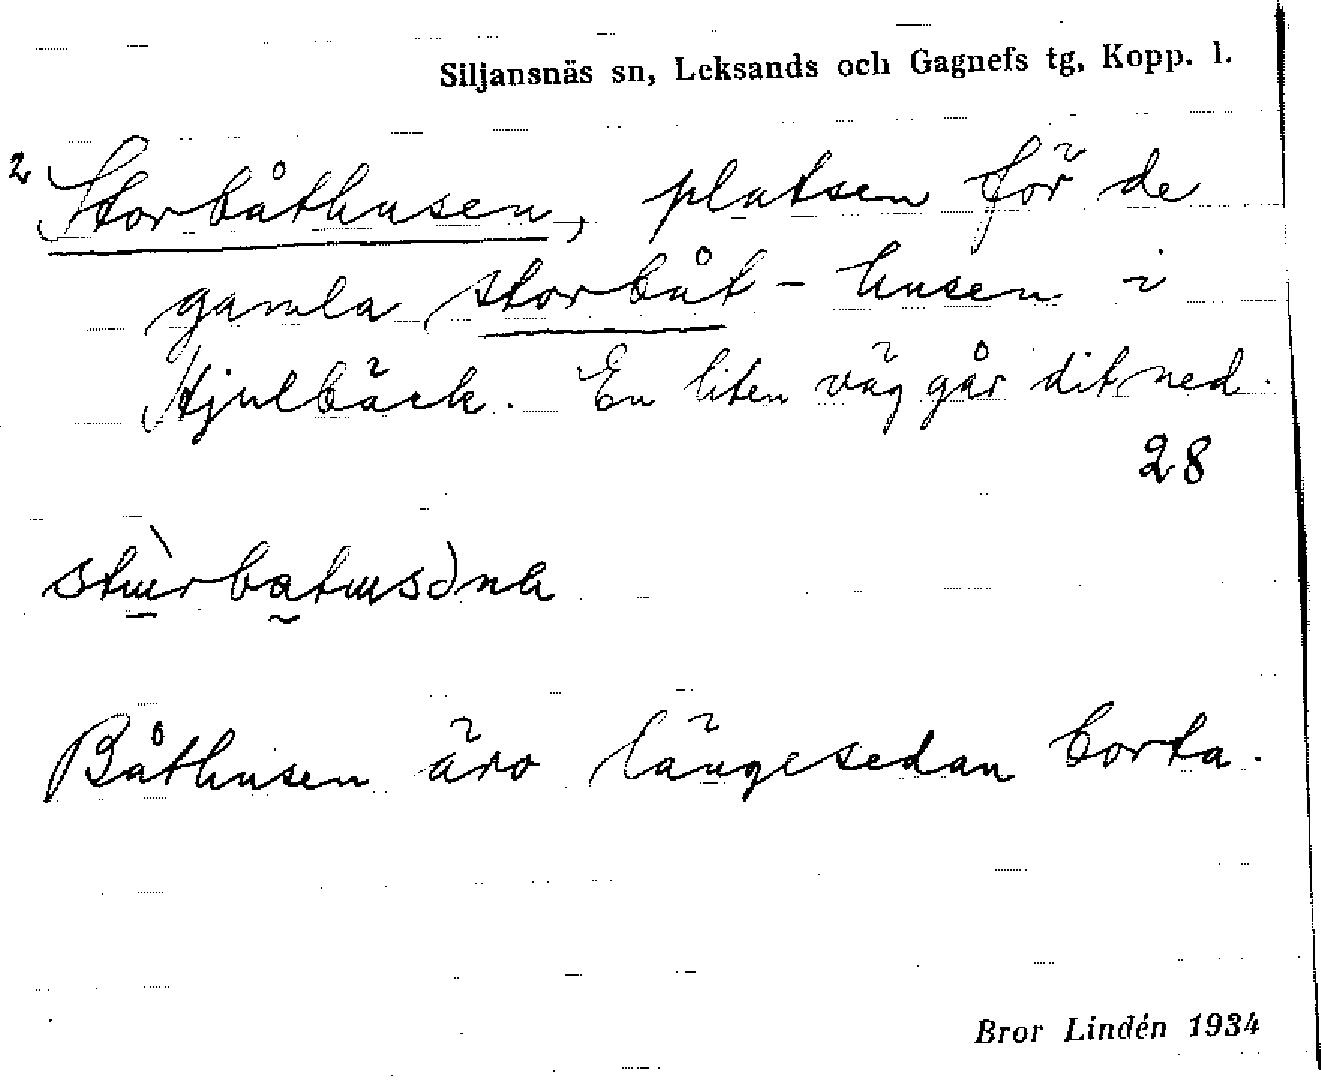 Siljansnäs sn, Leksands och Gagnefs tg, Kopp. l.
2 Storbåthusen, platsen för de
gamla storbåt-husen i
Hjulbäck. En liten väg går dit ned.
28
Båthusen äro längesedan borta.
Bror Lindén 1934